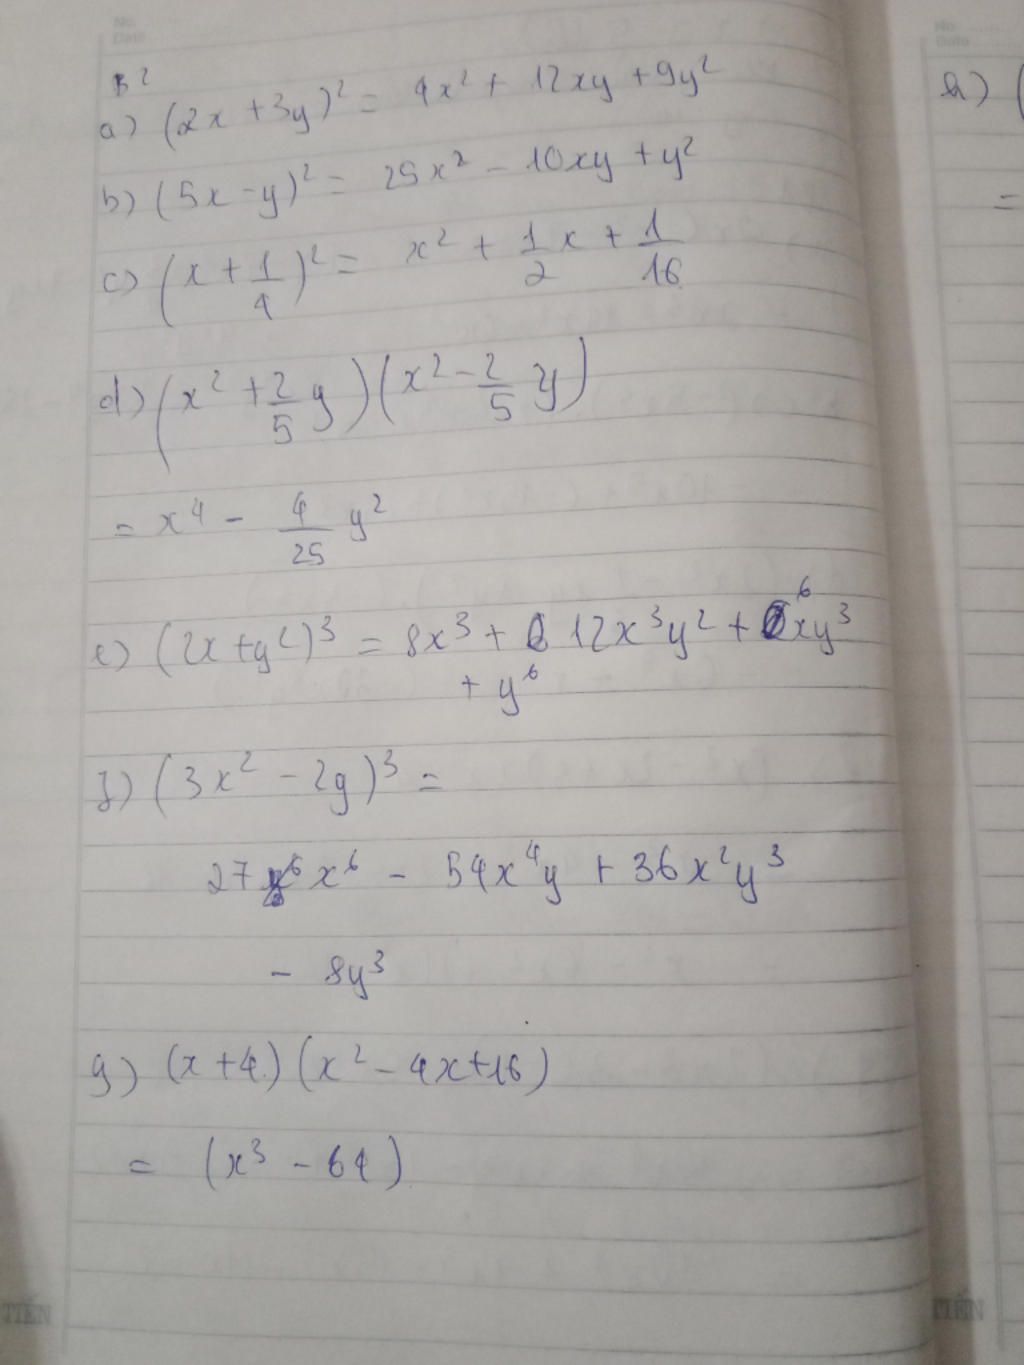 No.
Date
B2
a) (2x + 3y)² = 4x² + 12xy + 9y²
b) (5x - y)² = 25x² - 10xy + y²
c) (x + 1/4)² = x² + 1/2 x + 1/16
d) (x² + 2/5 y)(x² - 2/5 y)
= x⁴ - 4/25 y²
e) (2x + y²)³ = 8x³ + 12x³y² + 6xy³
+ y⁶
f) (3x² - 2y)³ =
27 x⁶ - 54x⁴y + 36x²y³
- 8y³
g) (x + 4)(x² - 4x + 16)
= (x³ - 64)
TIẾN
No.
Date
h) (
=
TIẾN